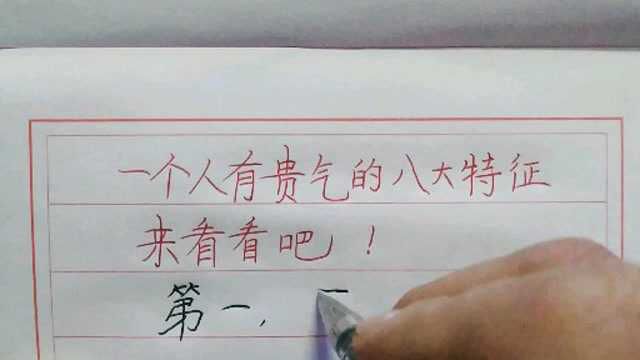 一个人有贵气的八大特征
来看看吧！
第一，